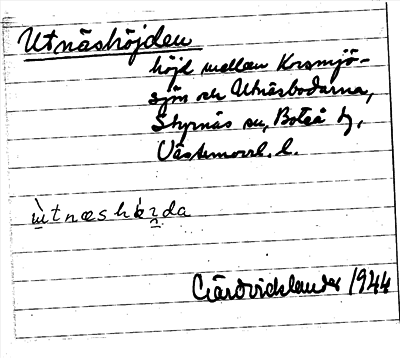 Utnäshöjden
höjd mellan Kramsjö-
sjön och Utnäsbodarna,
Styrnäs sn, Boteå tg,
Västernorrl. l.
Gärdvidslander 1944